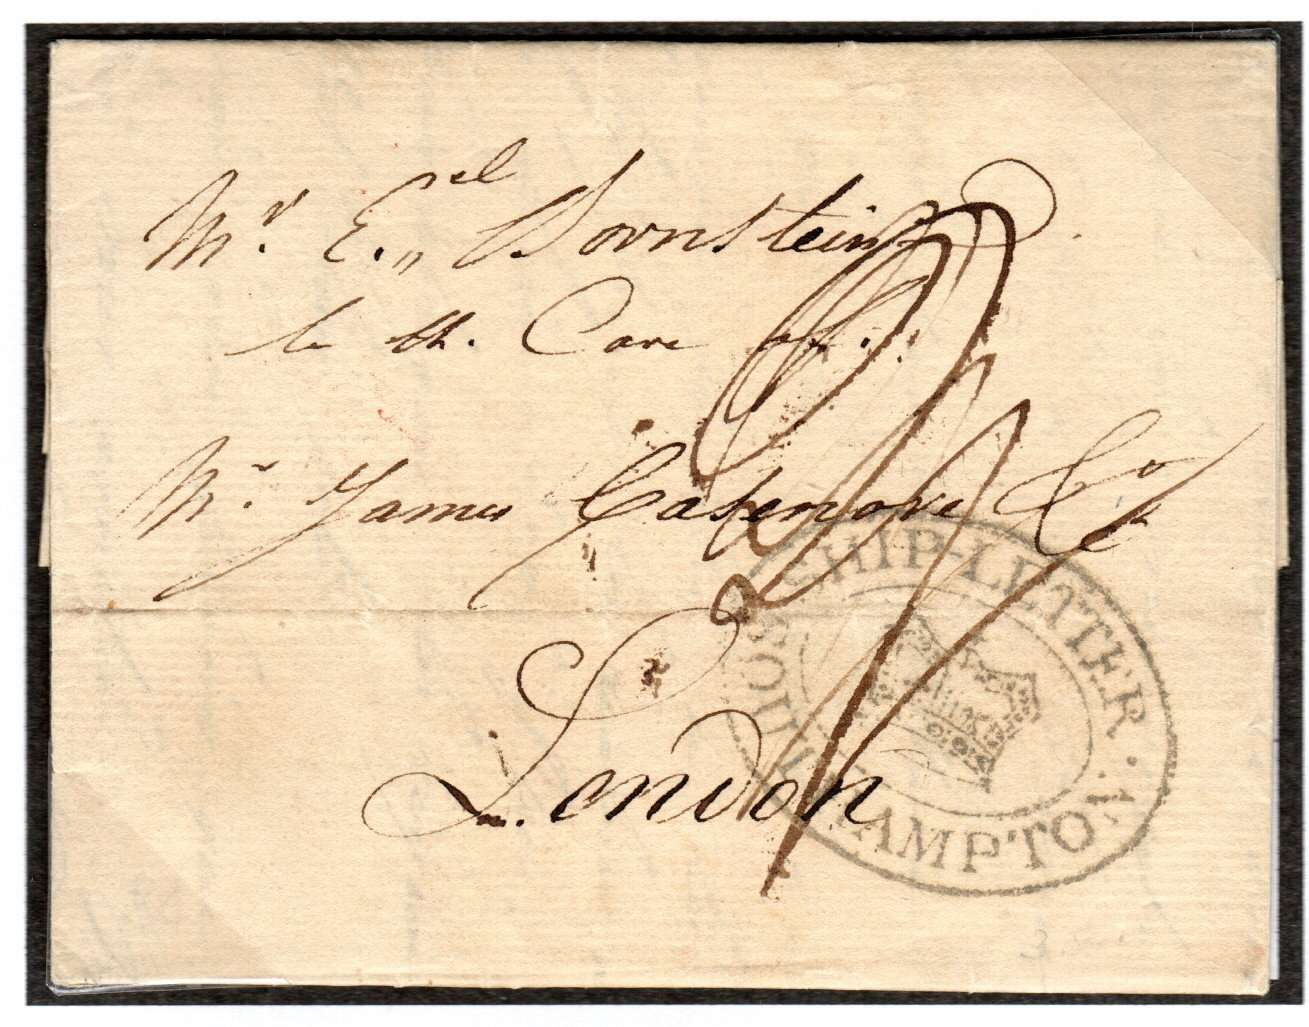 Mr. E.el Bornstein
to th. Care of
Mr. James Casenove & Co
London
SHIP-LETTER
SOUTHAMPTON